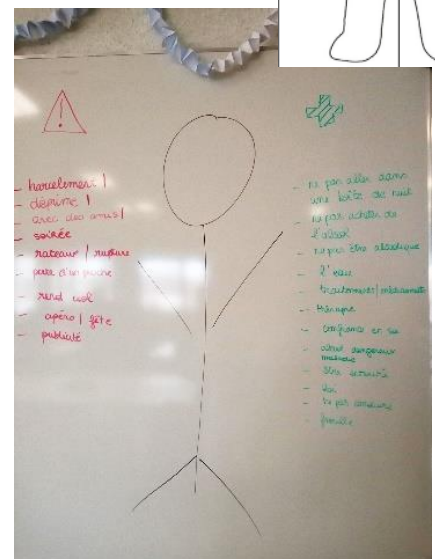 !
- harcelement |
- déprime |
- avec des amis |
- soirée
- rateaux / rupture
- perte d'un proche
- rend cool
- apéro / fête
- publicité
- ne pas aller dans
une boîte de nuit
- ne pas acheter de
l'alcool
- ne pas être alcoolique
- l'eau
- traitements / médicaments
- thérapie
- confiance en soi
- dangereux
maladie
- être
- loi
- ne pas
- famille